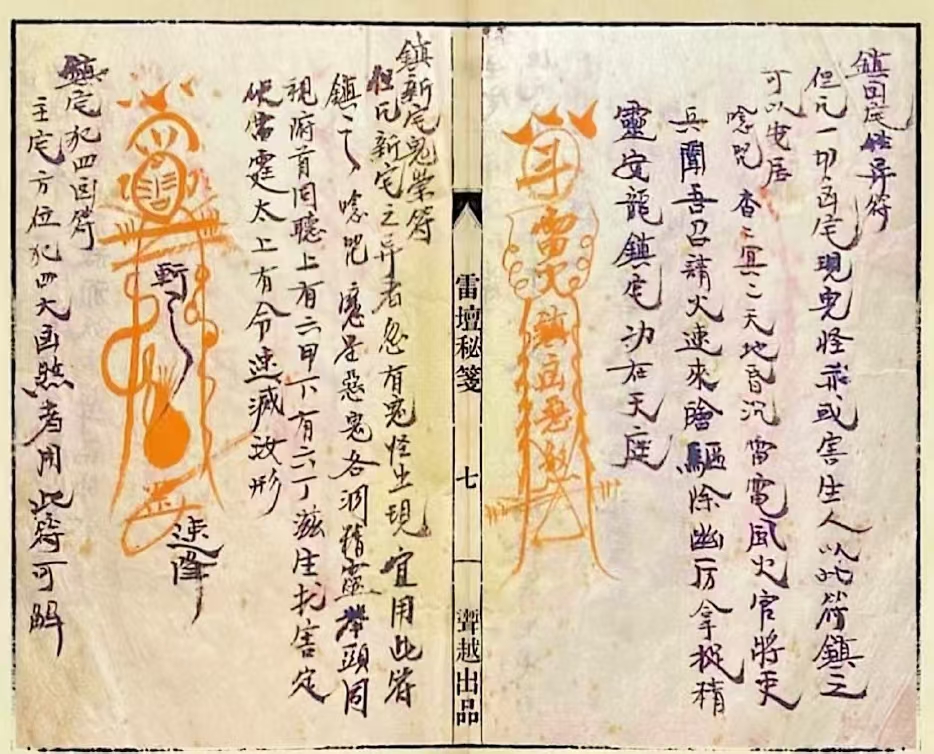 鎮凶宅怪异符
但凡一切凶宅現鬼怪祟或害生人以此符鎮之
可以安居
唸咒 杳杳冥冥天地昏沉雷電風火官將吏
兵聞吾召請火速來臨驅除幽厉拿捉精
靈安龍鎮宅功在天庭
雷火
鎮凶惡煞
雷壇秘箋
七
聾越出品
鎮新宅鬼祟符
但凡新宅之异者忽有鬼怪出現宜用此符
鎮之唸咒 魔星惡鬼各洞精靈舉頭同
視府首同聽上有六甲下有六丁滋生扰害定
伏雷霆太上有令速滅汝形
斬
速降
鎮宅犯四凶符
主宅方位犯四大凶煞者用此符可解